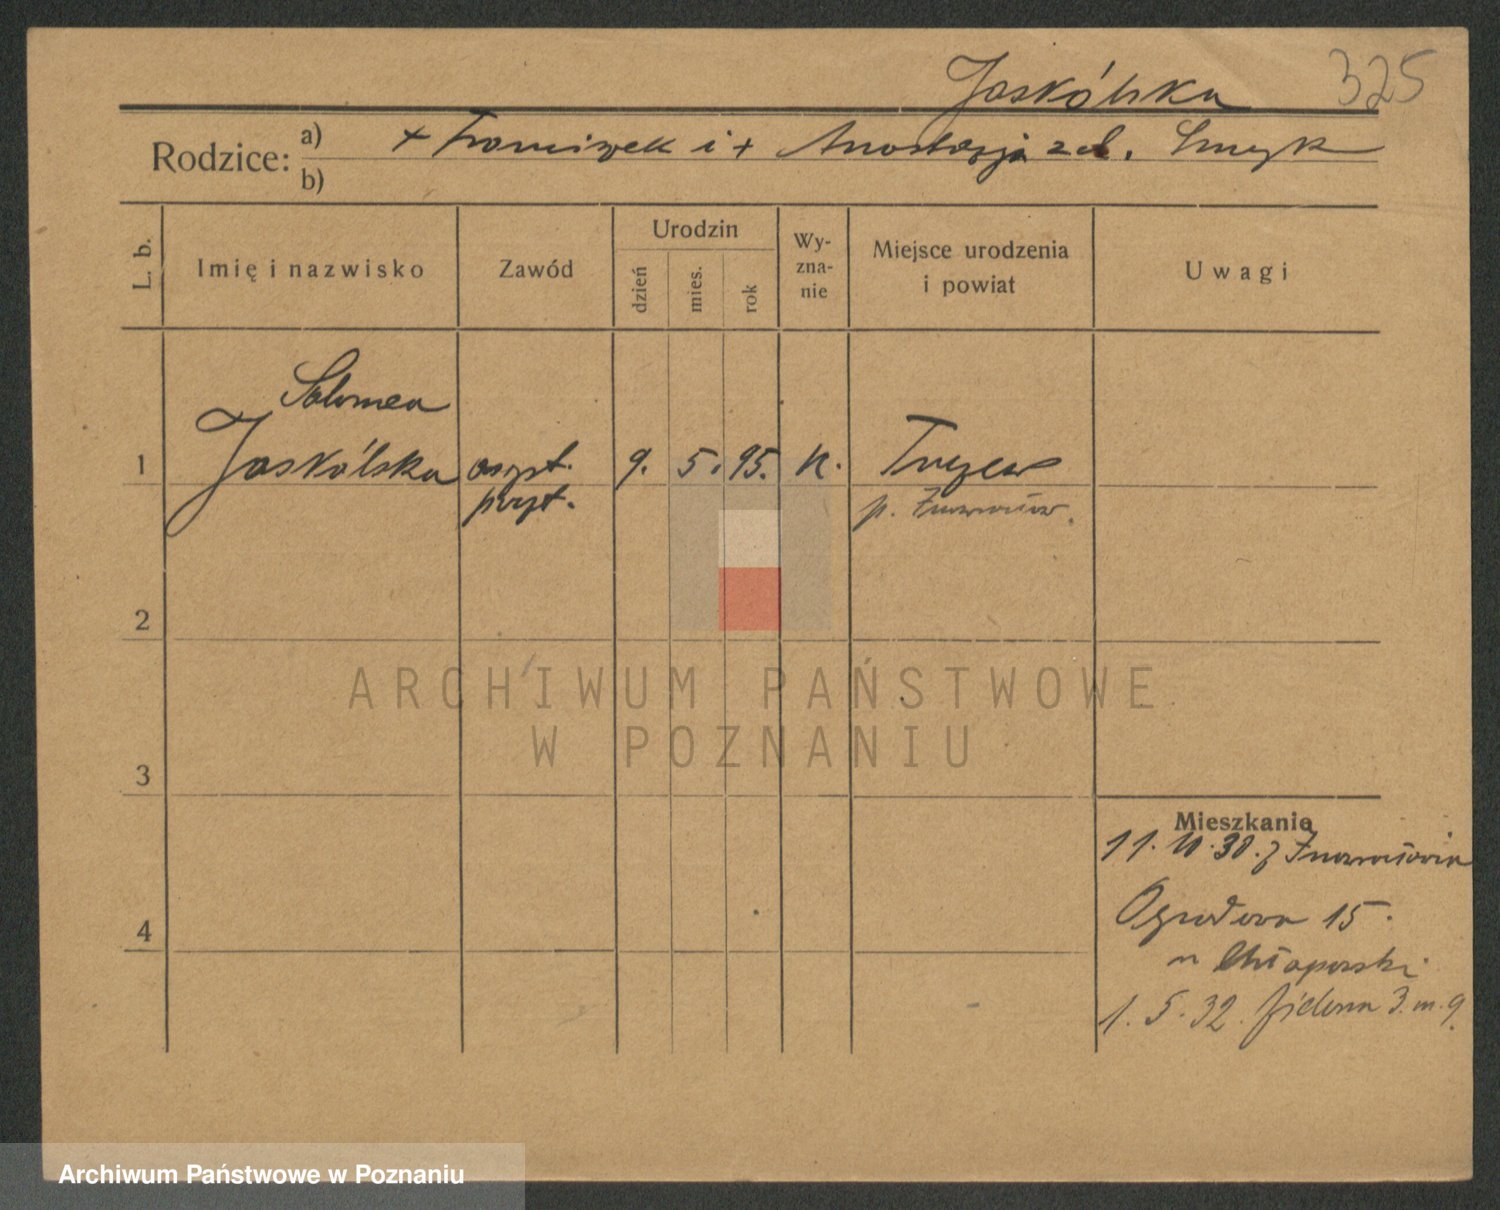 Jaskólska 325
Rodzice: a) + Franciszek i + Anastazja zd. Smyk
b)
L. b.
Imię i nazwisko
Zawód
Urodzin
dzień mies. rok
Wy-
zna-
nie
Miejsce urodzenia
i powiat
Uwagi
Salomea
1 Jaskólska asyst. 9. 5. 95. k.
p.
2
3
4
Mieszkanie
11. 10. 30. z Inowrocławia
Ogrodowa 15.
u Chłapowski
1. 5. 32. Zielona 3. m. 9.
ARCHIWUM PAŃSTWOWE
W POZNANIU
Archiwum Państwowe w Poznaniu